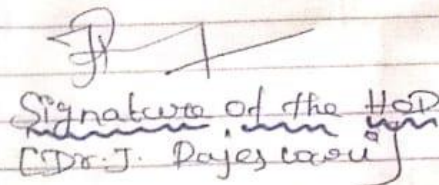 Signature of the HOD
[Dr. J. Rajeswari]